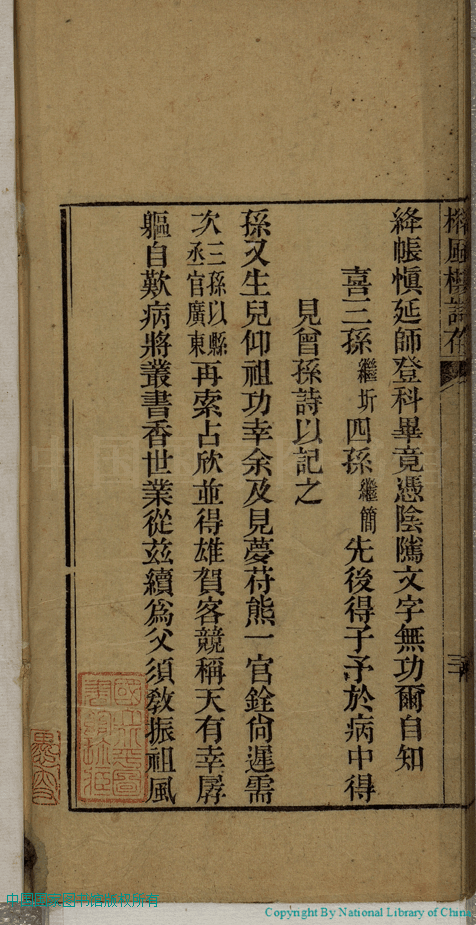 絳帳愼延師登科畢竟憑陰隲文字無功爾自知
喜三孫繼圻四孫繼簡先後得子予於病中得
見曾孫詩以記之
孫又生兒仰祖功幸余及見夢苻熊一官銓尙遲需
次三孫以縣丞官廣東再索占欣並得雄賀客競稱天有幸孱
軀自歎病將叢書香世業從茲續爲父須敎振祖風
中国国家图书馆版权所有
Copyright By National Library of China